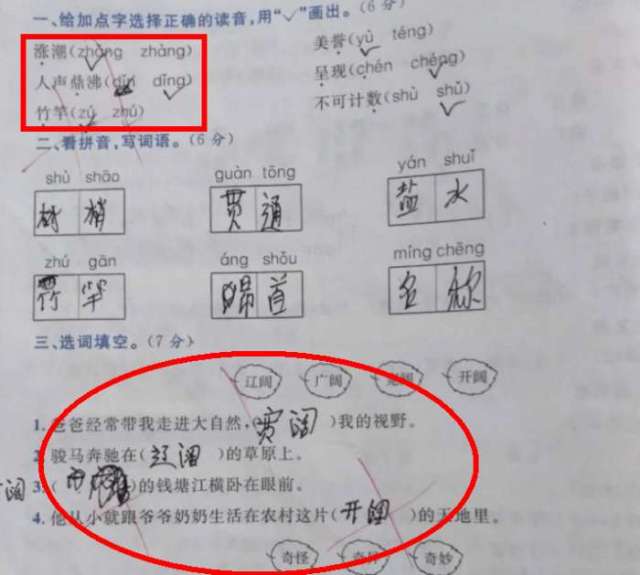 一、给加点字选择正确的读音,用“✓”画出。(6分)
涨潮(zhǎng zhàng) 美誉(yù téng)
人声鼎沸( dǐng) 呈现(chén chéng)
竹竿(zú zhú) 不可计数(shù shǔ)
二、看拼音,写词语。(6分)
shù shāo guàn tōng yán shuǐ
树梢 贯通 盐水
zhú gān áng shǒu míng chēng
竿 昂首 名称
三、选词填空。(7分)
辽阔 广阔 宽阔 开阔
1. 爸爸经常带我走进大自然,(宽阔)我的视野。
2. 骏马奔驰在(辽阔)的草原上。
阔 3. ( )的钱塘江横卧在眼前。
4. 他从小就跟爷爷奶奶生活在农村这片(开阔)的天地里。
奇怪 奇异 奇妙